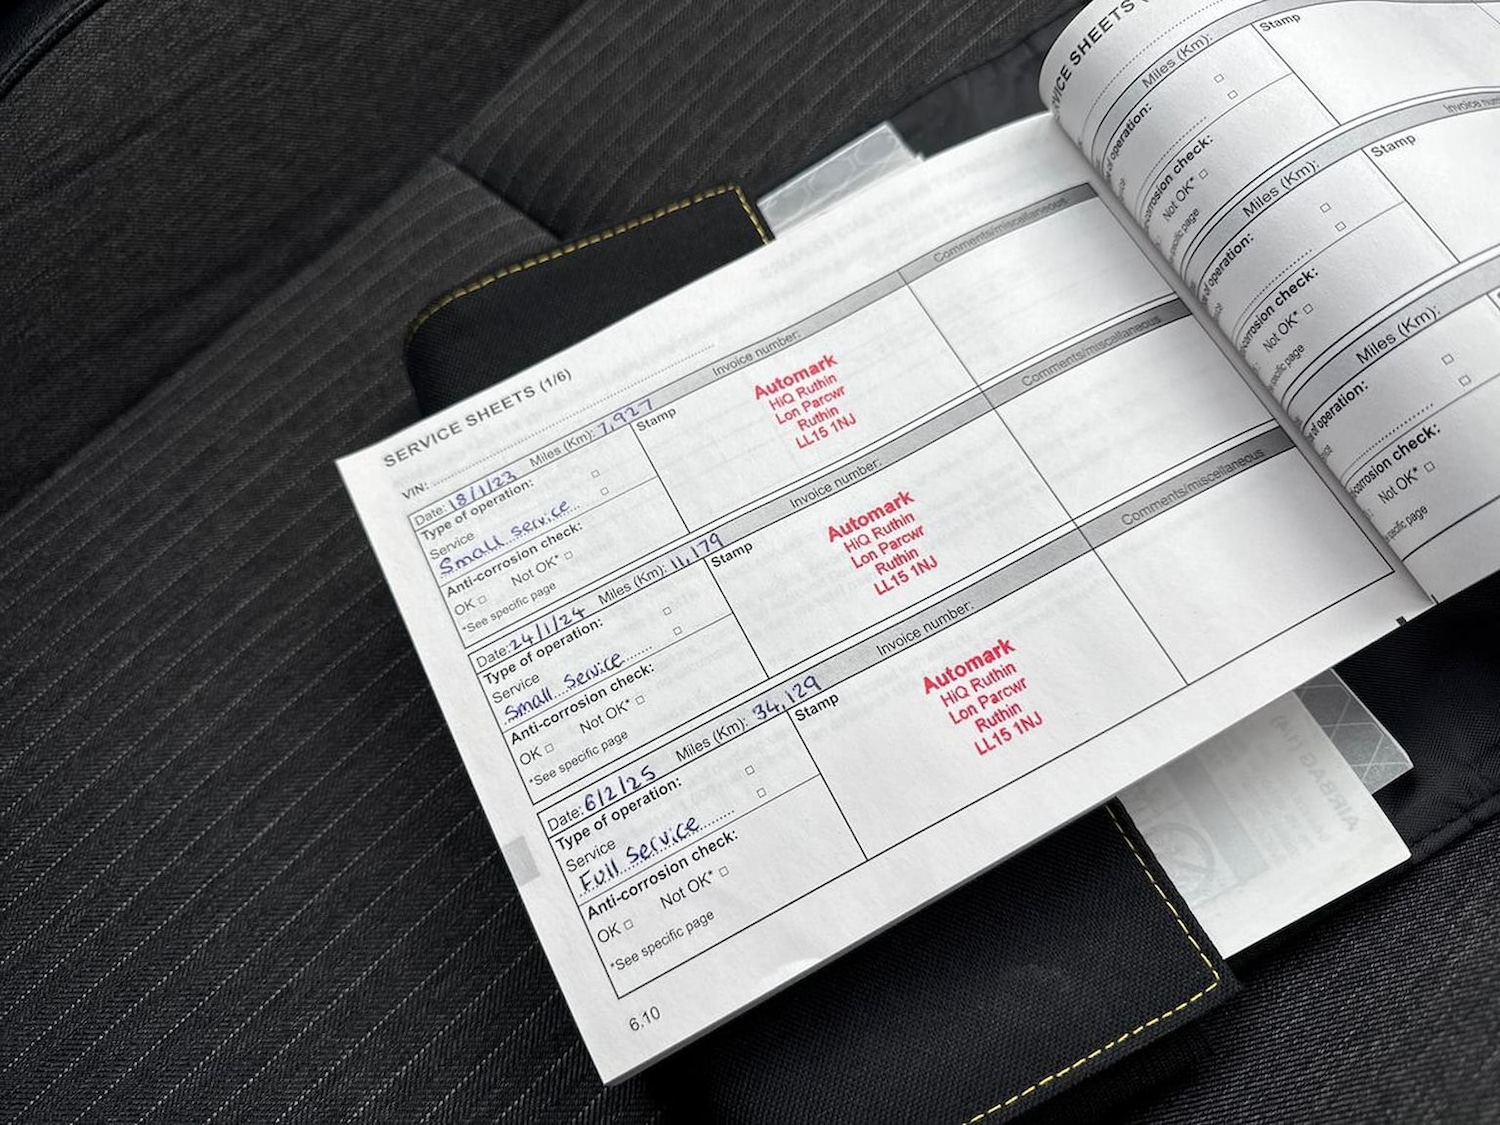 SERVICE SHEETS (1/6)
VIN:
Date: 18/1/23 Miles (Km): 7,927 Invoice number: Comments/miscellaneous
Type of operation: Stamp
Service
Small service
Anti-corrosion check:
OK Not OK*
*See specific page
Automark
HiQ Ruthin
Lon Parcwr
Ruthin
LL15 1NJ
Date: 24/1/24 Miles (Km): 11,179 Invoice number: Comments/miscellaneous
Type of operation: Stamp
Service
Small Service
Anti-corrosion check:
OK Not OK*
*See specific page
Automark
HiQ Ruthin
Lon Parcwr
Ruthin
LL15 1NJ
Date: 6/2/25 Miles (Km): 34,129 Invoice number: Comments/miscellaneous
Type of operation: Stamp
Service
Full Service
Anti-corrosion check:
OK Not OK*
*See specific page
Automark
HiQ Ruthin
Lon Parcwr
Ruthin
LL15 1NJ
6.10
SHEETS
Miles (Km):
Stamp
operation:
check:
Not OK*
page
Miles (Km):
Stamp
Invoice
of operation:
check:
Not OK*
page
Miles (Km):
of operation:
check:
Not OK*
page